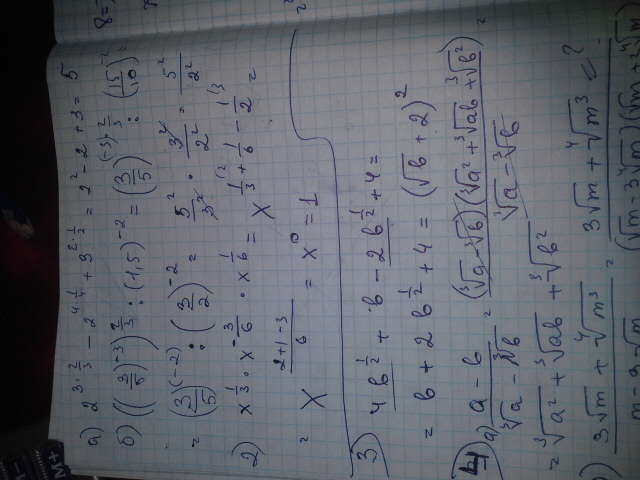 а) 2^{3·2/3} − 2^{4·1/4} + 3^{2·1/2} = 2² − 2 + 3 = 5
б) ((3/5)^{-3})^{2/3} : (1,5)^{-2} = (3/5)^{(-3)·2/3} : (15/10)^{-2} =
= (3/5)^{(-2)} : (3/2)^{-2} = 5²/3² · 3²/2² = 5²/2²
2) x^{1/3} · x^{-3/6} · x^{1/6} = x^{1/3 + 1/6 − 1/2} =
= x^{(2+1−3)/6} = x⁰ = 1
3) 4b^{1/2} + b − 2b^{1/2} + 4 =
= b + 2b^{1/2} + 4 = (√b + 2)²
4) а) (a − b)/(∛a − ∛b) = (∛a − ∛b)(∛a² + ∛ab + ∛b²)/(∛a − ∛b) =
= ∛a² + ∛ab + ∛b²
) 3√m + ∜m³ = 3√m + ∜m³ = ?